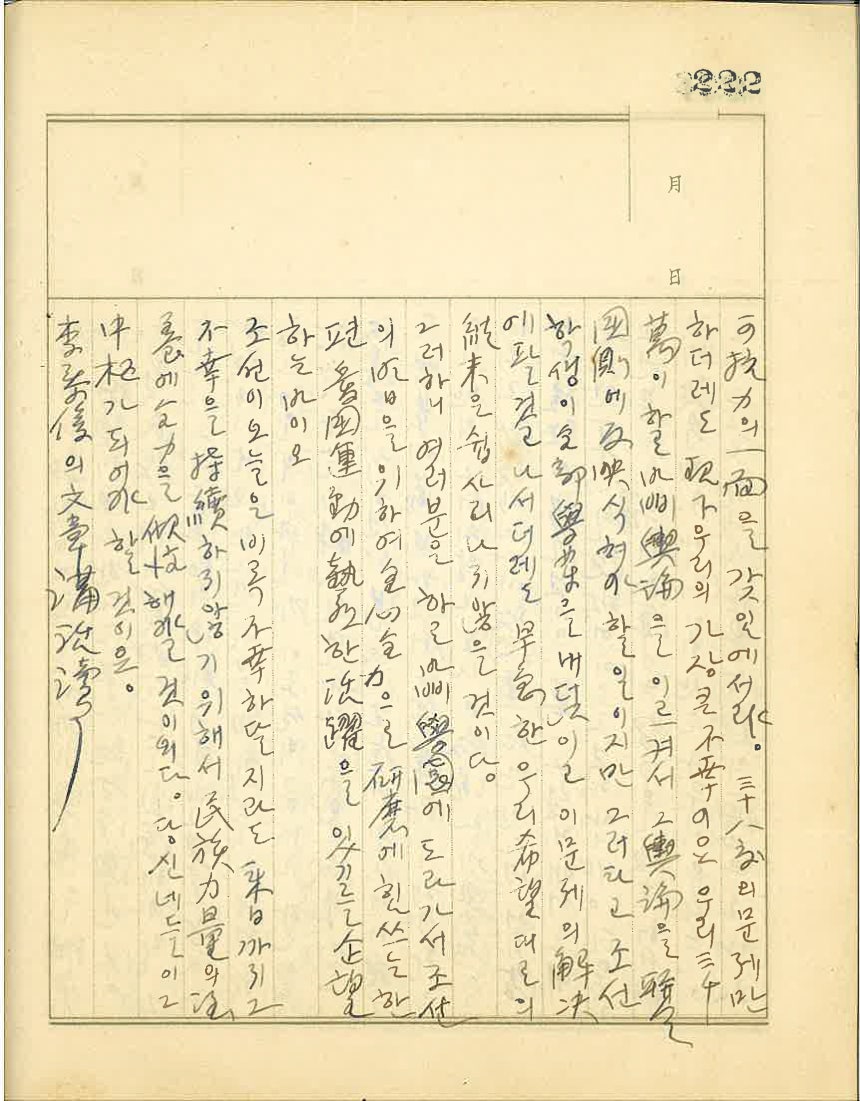 222
月
日
可抗力의 一面을 갖잇에서랴。 三十八度의 문제만
하더레도 現下 우리의 가장 큰 不幸이오 우리 三千
萬이 할 바삐 輿論을 이르켜서 그 輿論을 聯
國側에 反映식혀야 할 일이지만 그러타고 조선
학생이 全部 學業을 내던이고 이 문제의 解決
에 팔 걷고 나서더레도 무한 우리 希望대로의
結末은 쉽사리 나지 않을 것이다
그러하니 여러분은 하로 바삐 學園에 도라가서 조선
의 을 위하여 全心全力으로 研磨에 힘쓰는 한
편 愛國運動에 熱烈한 活躍을 있기를 企望
하는 바이오
조선이 오늘은 비록 不幸하달지라도 来日까지 그
不幸을 持續하지 않기 위해서 民族力量의
養에 全力을 傾해야 할 것이외다。 당신네들이 그
中枢가 되어야 할 것이오。
李泰俊의 文章 讀